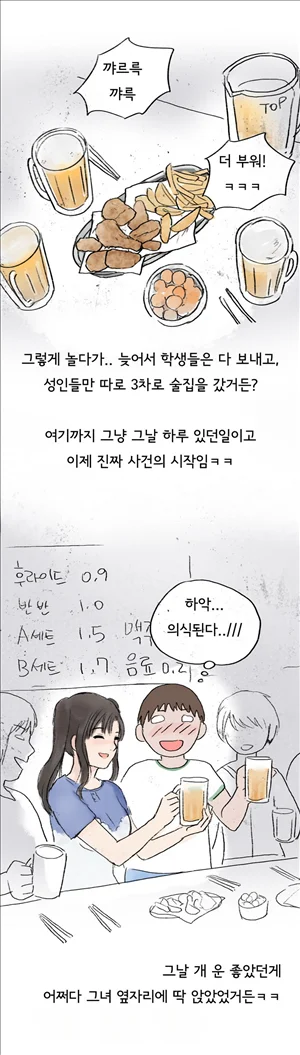 꺄르륵
꺄륵
TOP
더 부워!
ㅋㅋㅋ
그렇게 놀다가.. 늦어서 학생들은 다 보내고,
성인들만 따로 3차로 술집을 갔거든?
여기까지 그냥 그날 하루 있던일이고
이제 진짜 사건의 시작임ㅋㅋ
후라이드 0.9
반반 1.0
A세트 1.5 맥주
B세트 1.7 음료 0.2
하악...
의식된다..///
그날 개 운 좋았던게
어쩌다 그녀 옆자리에 딱 앉았었거든ㅋㅋ